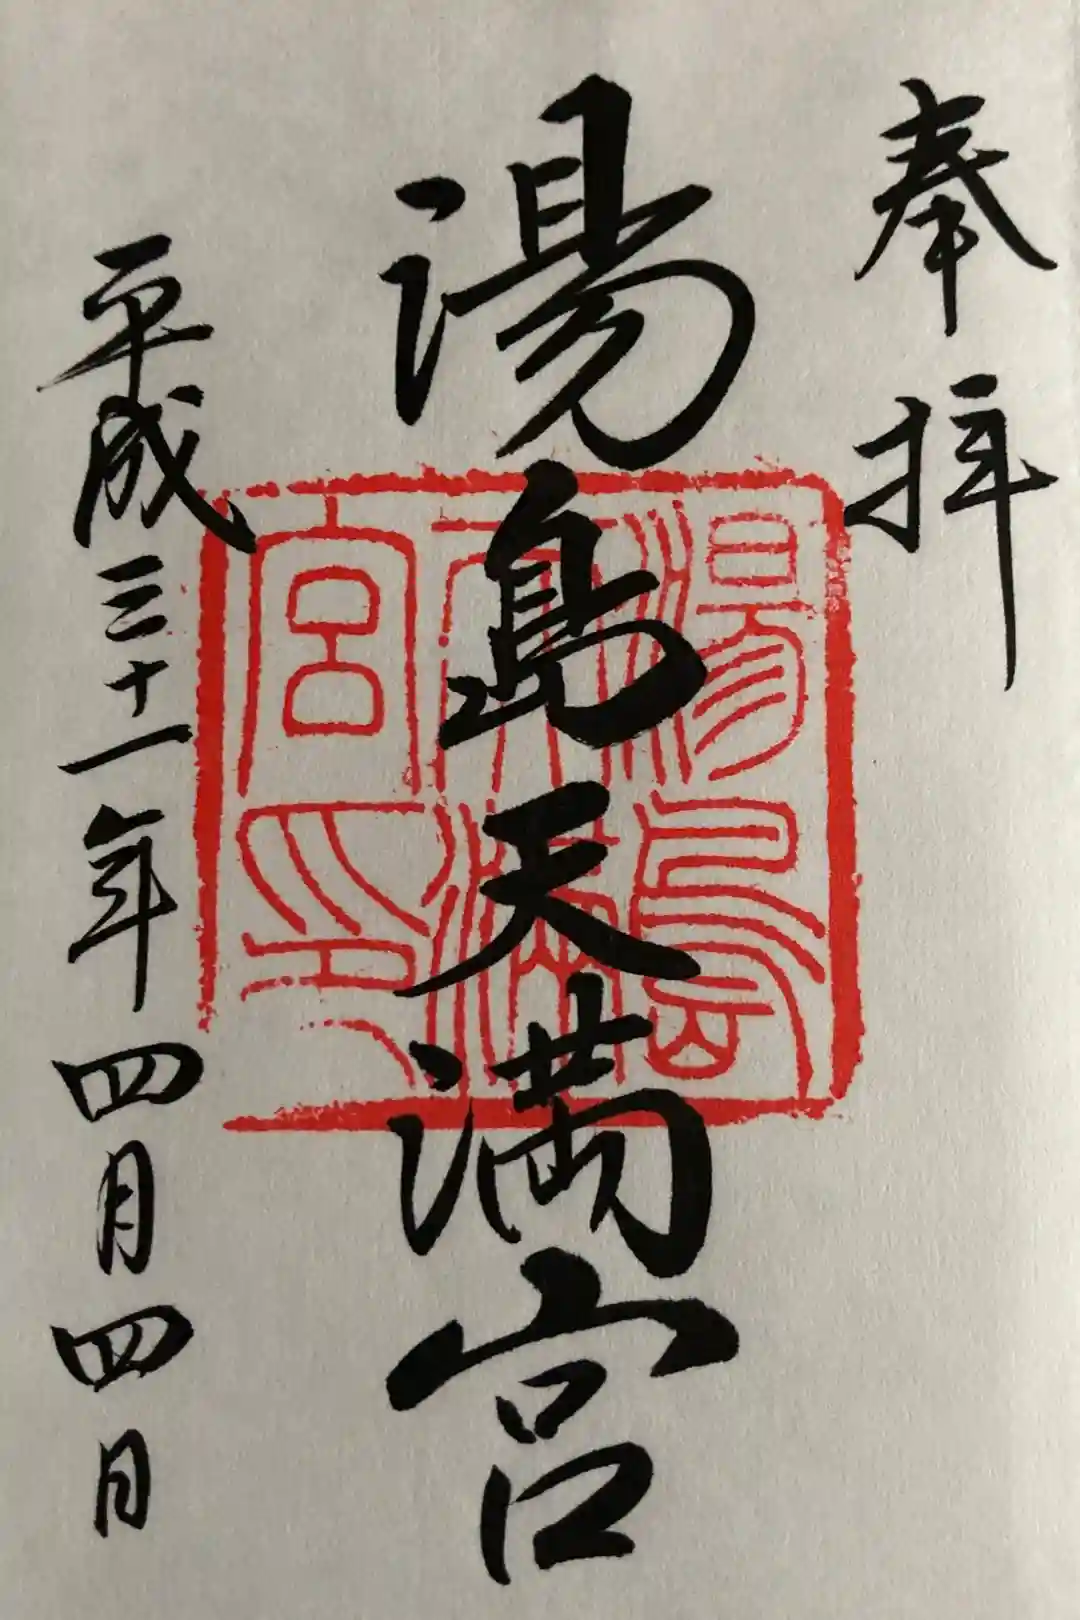 奉拝
湯島天満宮
湯島天満宮印
平成三十一年四月四日